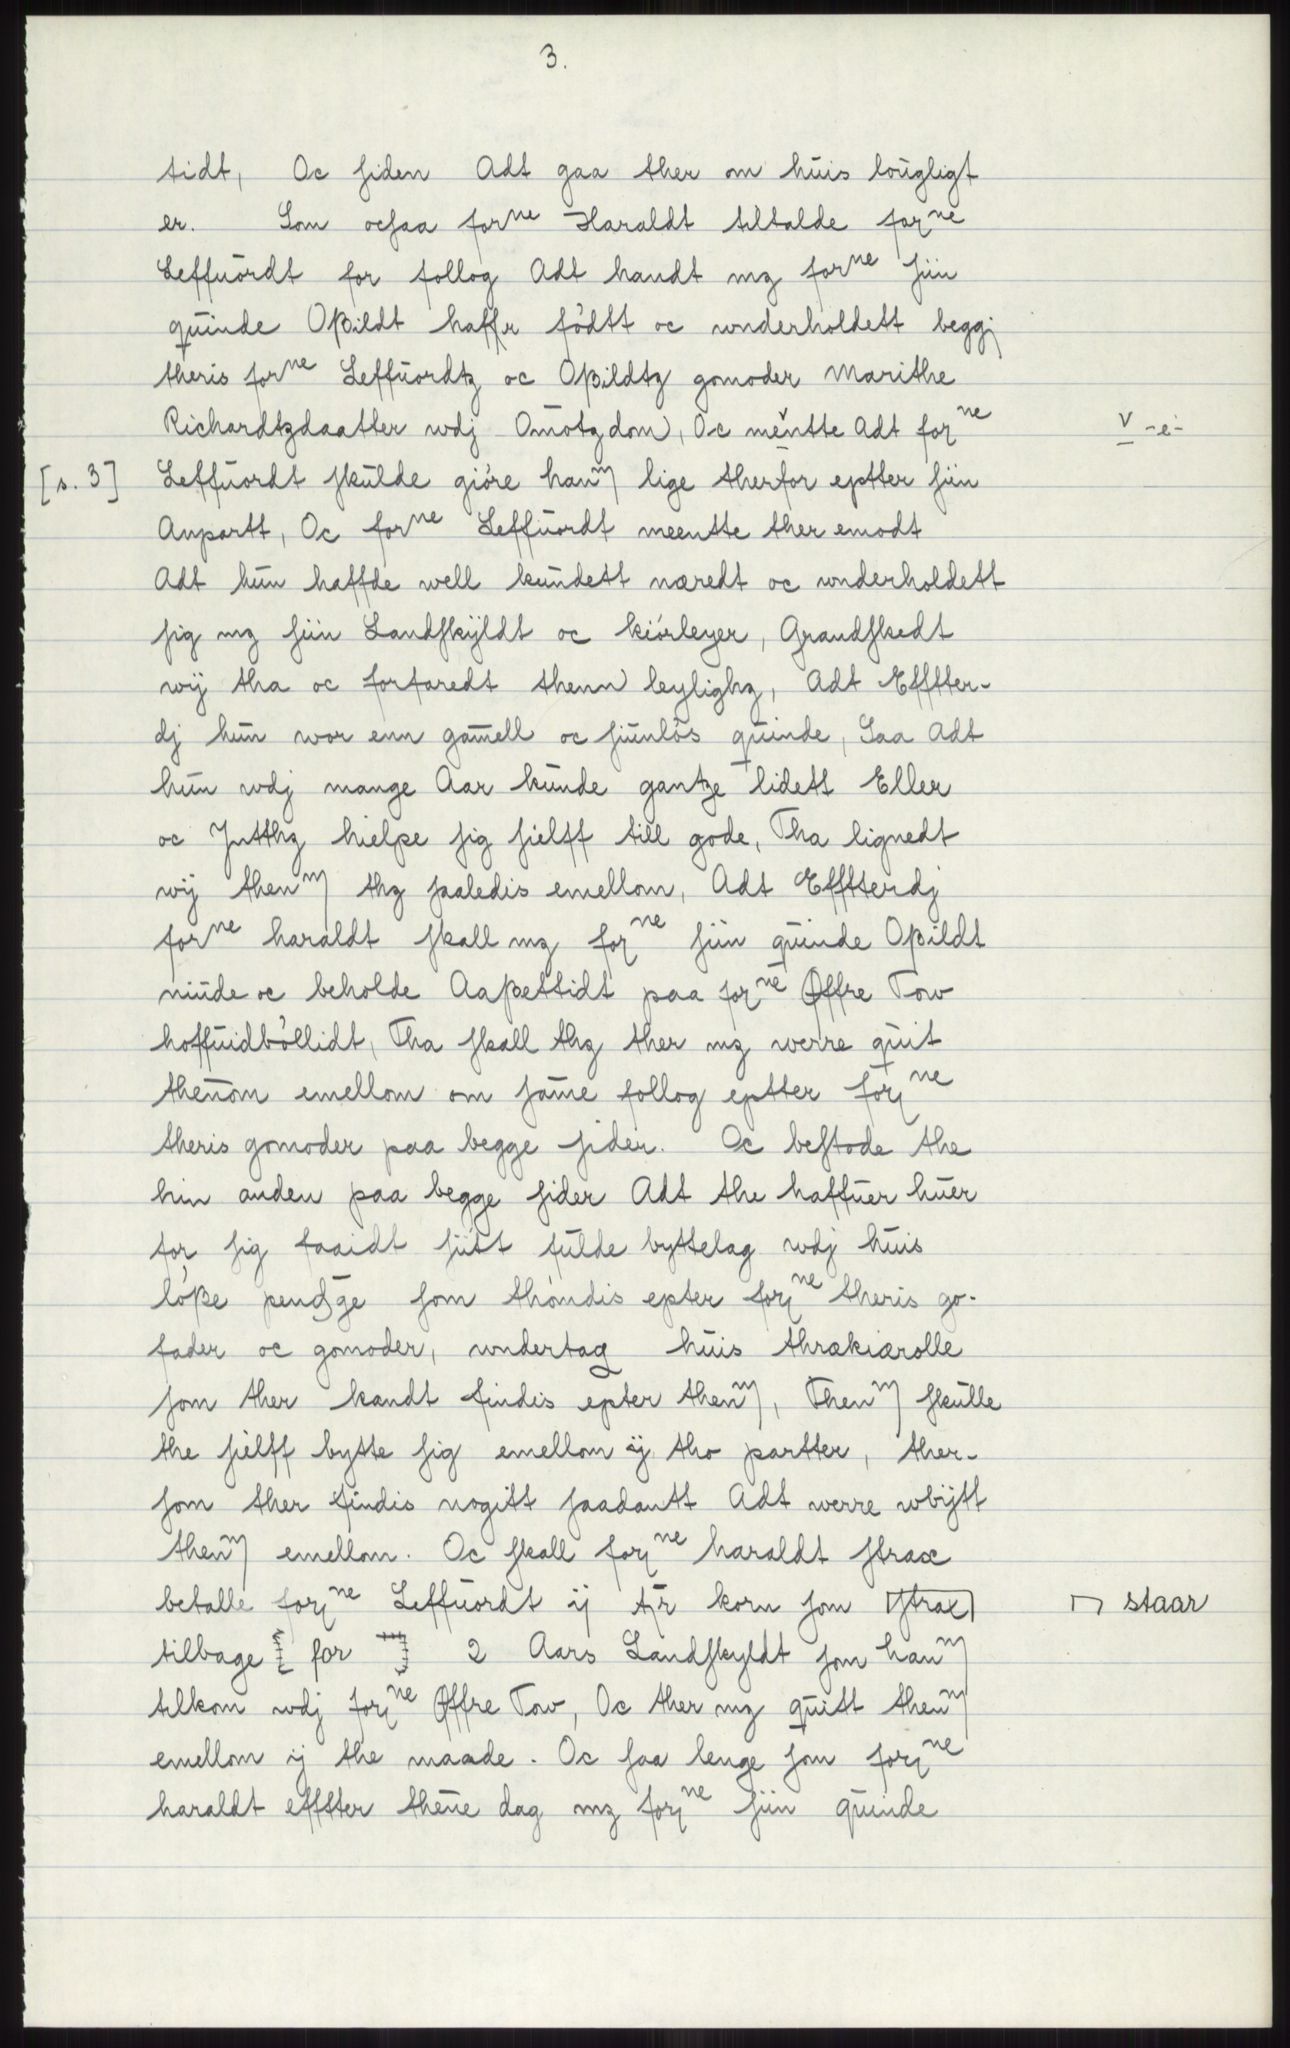 3.
tidt, Oc siden Adt gaa ther om huis lougligt
er. Som ocsaa forne Haraldt tiltalde forne
Leffuordt for follog Adt handt mz forne siin
quinde Oßildt haffr födtt oc wnderholdett beggj
theris forne Leffuordtz oc Oßildtz gomoder Marithe
Richardtzdaatter wdj Omötzdom, Oc mentte Adt forne v -e-
[s. 3] Leffuordt skulde giöre hanm lige therfor eptter siin
Anpartt, Oc forne Leffuordt meentte ther emodt
Adt hun haffde well kundett næredt oc wnderholdett
sig mz siin Landskÿldt oc kiörleyer, Grandskedt
wÿ tha oc forfaredt thenn leylighz, Adt Effter-
dj hun wor enn gamell oc siunlös quinde, Saa Adt
hun wdj mange Aar kunde gantze lidett Eller
oc Jntthz hielpe sig sielff till gode, Tha lignedt
wÿ thenm thz saaledis emellom, Adt Effterdj
forne haraldt skall mz forne siin quinde Oßildt
niude oc beholde Aaßettidt paa forne Øffre Tow
hoffuidböllidt, Tha skall thz ther mz werre quit
thenom emellom om same follog eptter forne
theris gomoder paa begge sider. Oc bestode the
hin anden paa begge sider Adt the haffuer huer
for sig faaidt siitt fulde byttelag wdj huis
löße pendge som thömdis epter forne theris go-
fader oc gomoder, wndertag huis thrækiærolle
som ther kandt findis epter thenm, Thenm skulle
the sielff bytte sig emellom ij tho partter, ther-
som ther findis nogitt saadantt Adt werre wbÿtt
thenm emellom. Oc skall forne haraldt strax
betalle forne Leffuordt ij tjr korn som strax staar
tilbage [for] 2 Aars Landskyldt som hanm
tilkom wdj forne Øffre Tow, Oc ther mz quitt thenm
emellom ij the maade. Oc saa lenge som forne
haraldt effter thene dag mz forne siin quinde